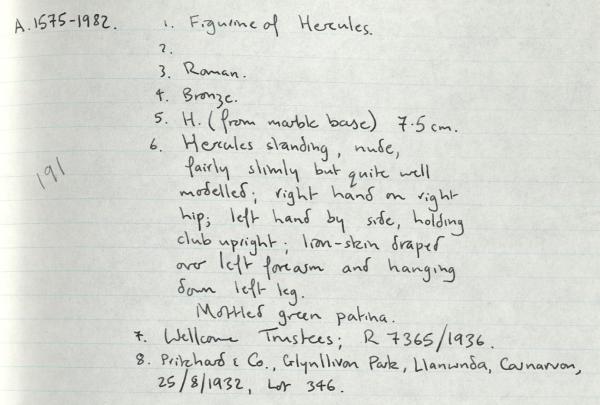 A.1575-1982. 1. Figurine of Hercules.
2.
3. Roman.
4. Bronze.
5. H. (from marble base) 7.5 cm.
6. Hercules standing, nude,
fairly slimly but quite well
modelled; right hand on right
hip; left hand by side, holding
club upright; lion-skin draped
over left forearm and hanging
down left leg.
Mottled green patina.
7. Wellcome Trustees; R 7365/1936.
8. Pritchard & Co., Glynllivon Park, Llanwnda, Carnarvon,
25/8/1932, Lot 346.
191